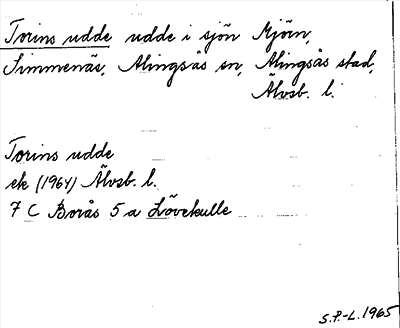 Torins udde udde i sjön Mjörn,
Simmenäs, Alingsås sn, Alingsås stad,
Älvsb. l.
Torins udde
ek (1964) Älvsb. l.
7 C Borås 5 a Lövekulle
S.P.-L. 1965